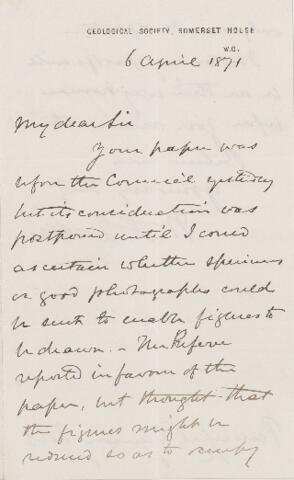 GEOLOGICAL SOCIETY, SOMERSET HOUSE
W.C.
6 April 1871
My dear Sir
Your paper was
upon the Council yesterday
but its consideration was
postponed until I could
ascertain whether specimens
or good photographs could
be sent to enable figures to
be drawn. –
reported in favour of the
paper, but thought that
the figures might be
reduced so as to occupy